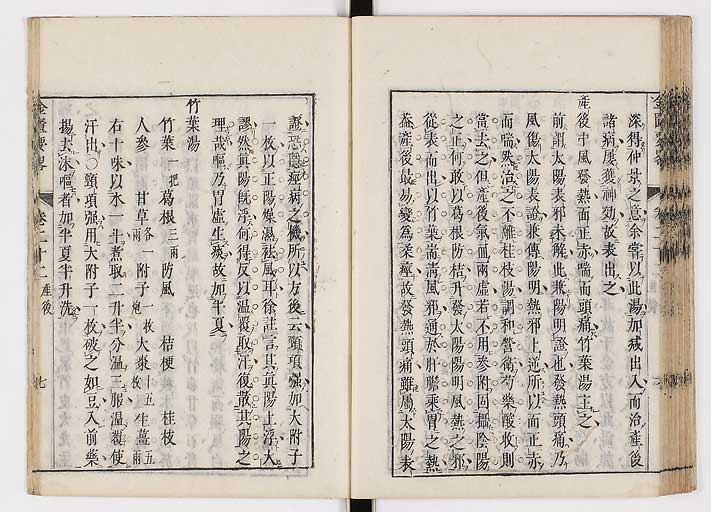 深得仲景之意余嘗以此湯加減出入而治產後
諸病屢獲神効故表出之
產後中風發熱面正赤喘而頭痛竹葉湯主之
前謂太陽表邪未解此兼陽明證也發熱頭痛乃
風傷太陽表證兼傳陽明熱邪上逆所以面正赤
而喘然治之不離桂枝湯調和營衛芍藥酸收則
當去之但產後氣血兩虛若不用參附固攝陰陽
之正何敢以葛根防桔升發太陽陽明風熱之邪
從表而出以竹葉湍清風邪通於肝膽乘胃之熱
蓋產後最易變為柔痙故發熱頭痛雖屬太陽表
證恐隱痙病之機所以方後云頸項强加大附子
一枚以正陽燥濕祛風耳徐註言其真陽上浮大
謬然真陽既浮何得反以溫覆取汗復散其陽之
理哉嘔乃胃虛生痰故加半夏
竹葉湯
竹葉一把 葛根三兩 防風 桔梗 桂枝
人參 甘草各一兩 附子一枚炮 大棗十五枚 生薑五兩
右十味以水一斗煮取二升半分溫三服溫覆使
汗出○頸項强用大附子一枚破之如豆入前藥
揚去沫嘔者加半夏半升洗
金匱要畧 卷二十二 產後 七